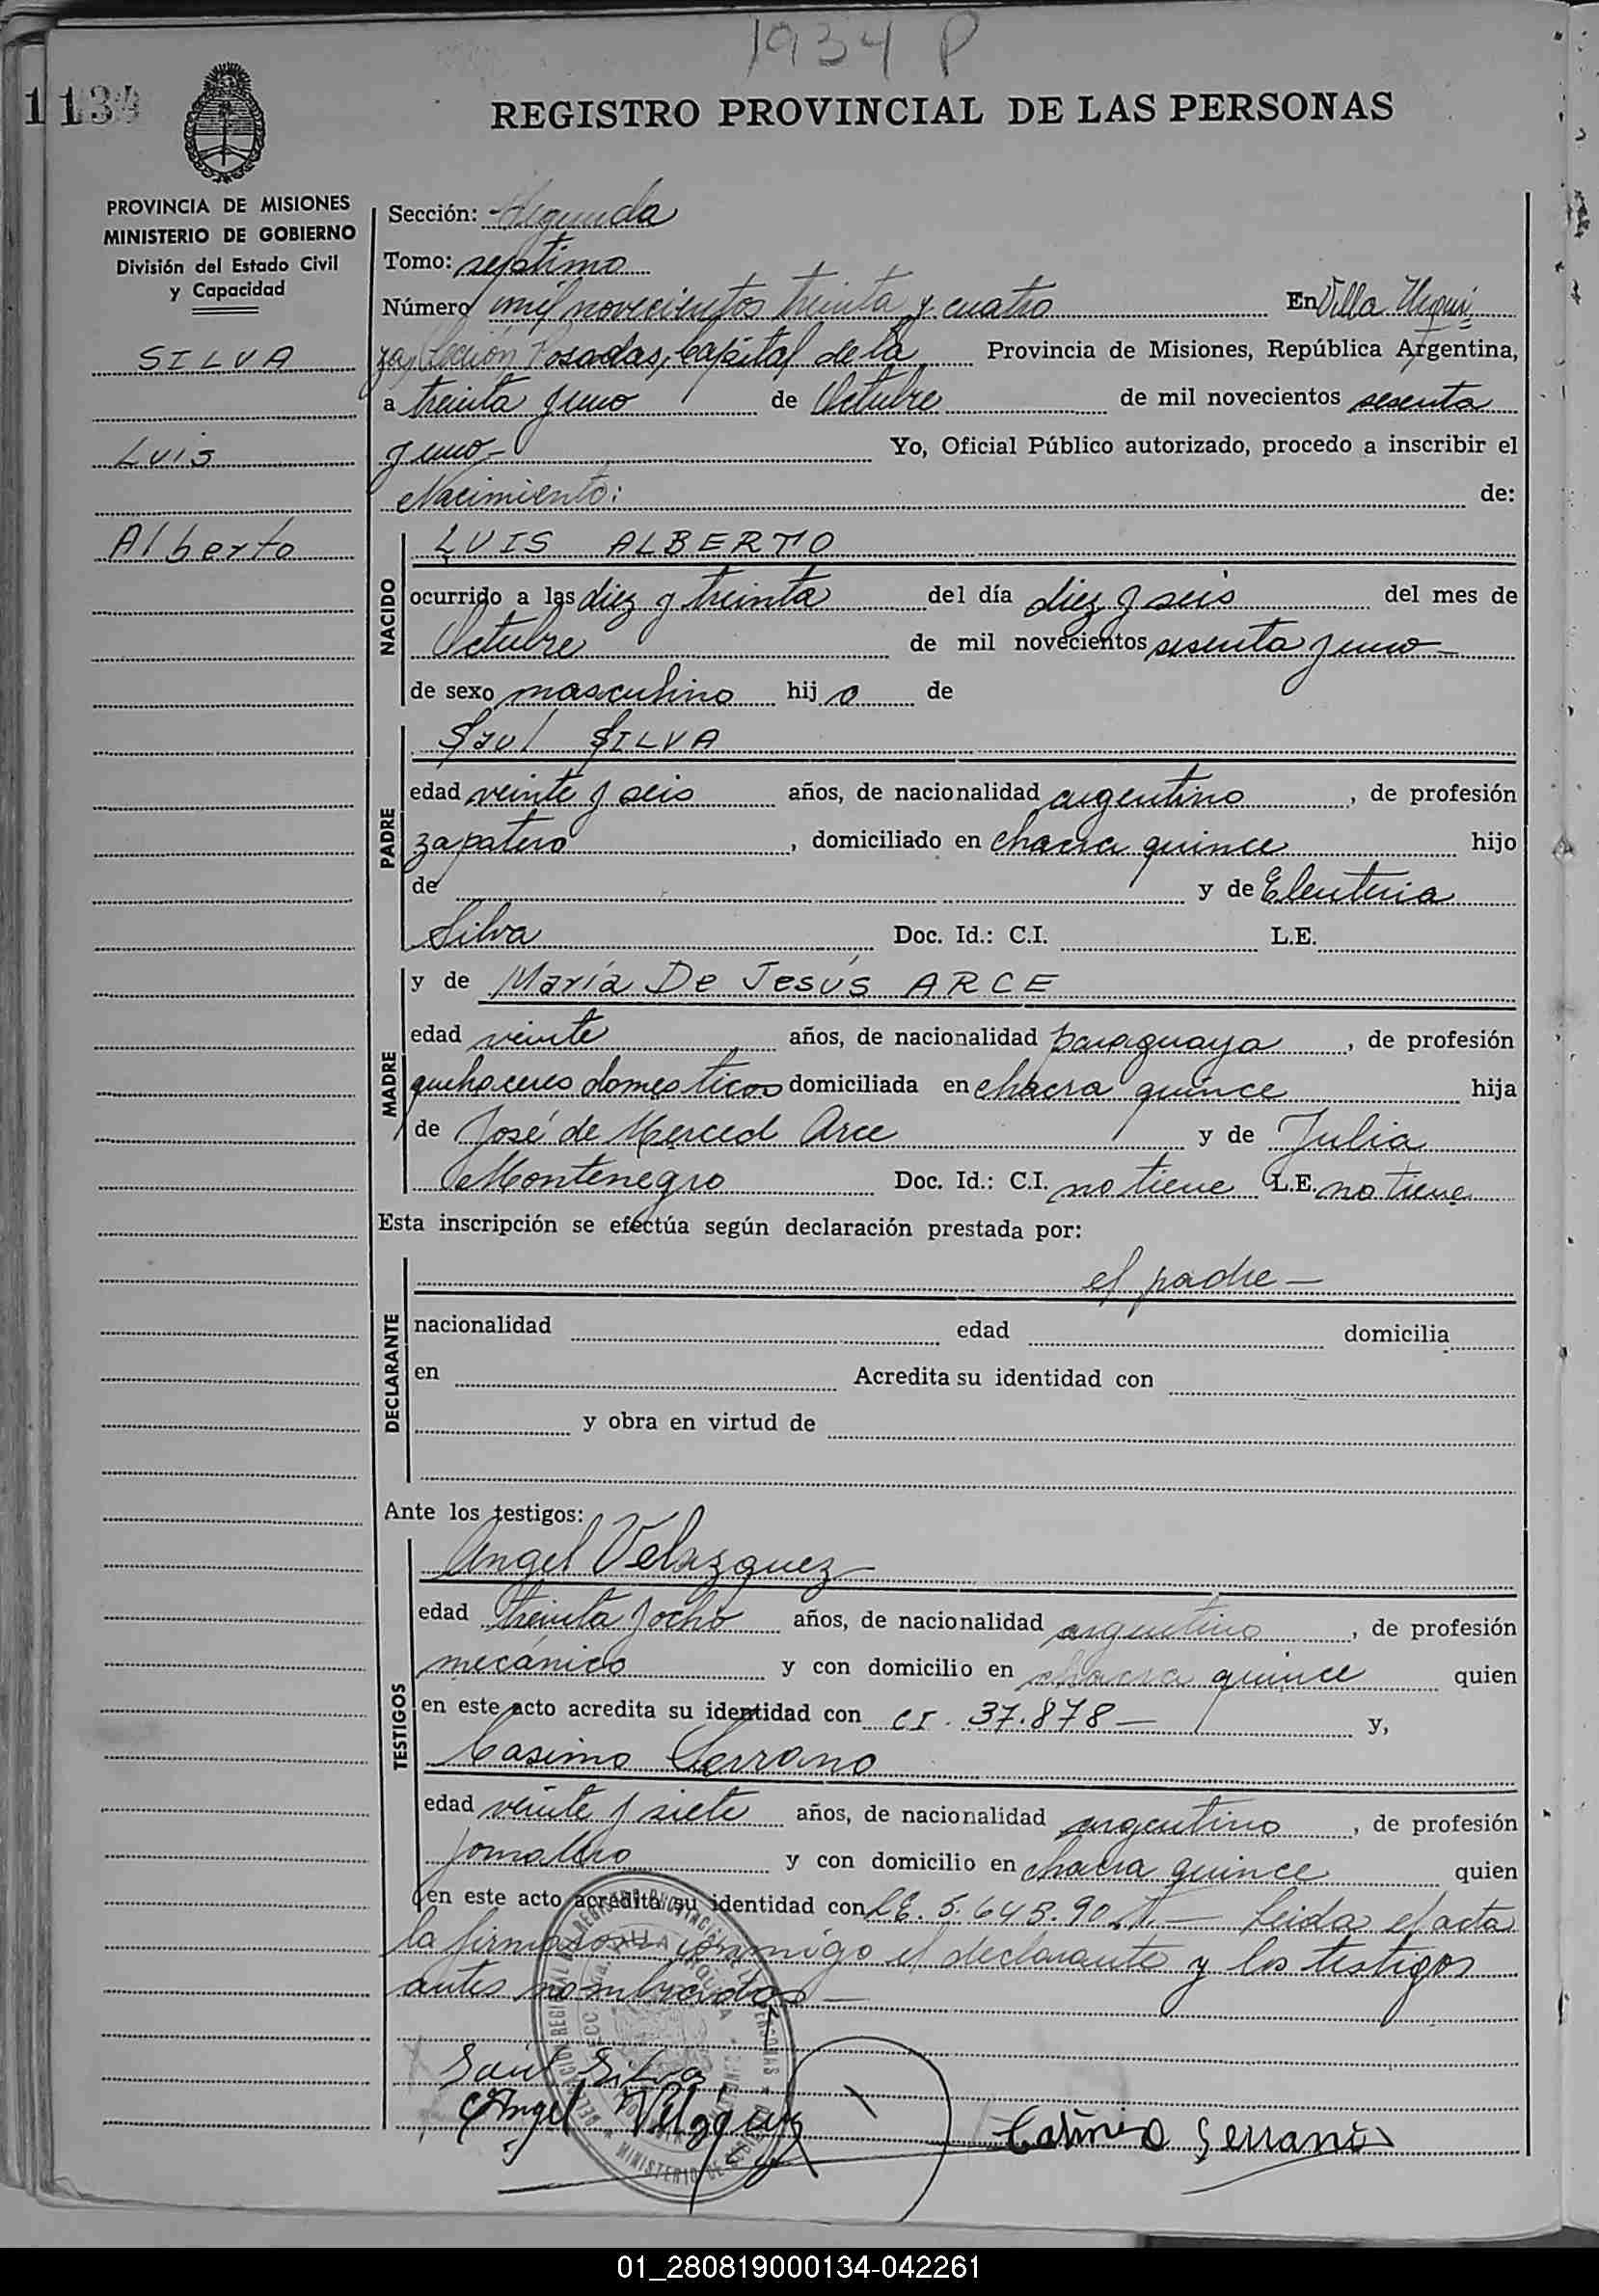 1934 P
1134
REGISTRO PROVINCIAL DE LAS PERSONAS
PROVINCIA DE MISIONES
MINISTERIO DE GOBIERNO
División del Estado Civil
y Capacidad
SILVA
Luis
Alberto
Sección: Segunda
Tomo: septimo
Número mil novecientos treinta y cuatro En Villa Urqui
za, Sección, Posadas, Capital de la Provincia de Misiones, República Argentina,
a treinta y uno de Octubre de mil novecientos sesenta
y uno- Yo, Oficial Público autorizado, procedo a inscribir el
Nacimiento: de:
NACIDO
LUIS ALBERTO
ocurrido a las diez y treinta del día diez y seis del mes de
Octubre de mil novecientos sesenta y uno—
de sexo masculino hijo de
PADRE
Saul SILVA
edad veinte y seis años, de nacionalidad argentino, de profesión
zapatero, domiciliado en chacra quince hijo
de y de Eleuteria
Silva Doc. Id.: C.I. L.E.
MADRE
y de María De Jesús ARCE
edad veinte años, de nacionalidad paraguaya, de profesión
quehaceres domesticos domiciliada en chacra quince hija
de José de Merced Arce y de Julia
Montenegro Doc. Id.: C.I. no tiene L.E. no tiene
Esta inscripción se efectúa según declaración prestada por:
DECLARANTE
el padre—
nacionalidad edad domicilia
en Acredita su identidad con
y obra en virtud de
Ante los testigos:
TESTIGOS
Angel Velazquez
edad treinta y ocho años, de nacionalidad argentino, de profesión
mecánico y con domicilio en chacra quince quien
en este acto acredita su identidad con CI. 37.878— y,
Casimiro Serrano
edad veinte y siete años, de nacionalidad argentino, de profesión
jornalero y con domicilio en chacra quince quien
en este acto acredita su identidad con LE. 5.643.90 — Leida el acta
la firman conmigo el declarante y los testigos
antes nombrados—
Saul Silva
Angel Velázquez
Casimiro Serrano
01_280819000134-042261